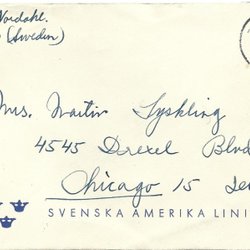 Nordahl.
(Sweden)
Mrs. Martin Tyskling
4545 Drexel Blvd
Chicago 15
SVENSKA AMERIKA LINI